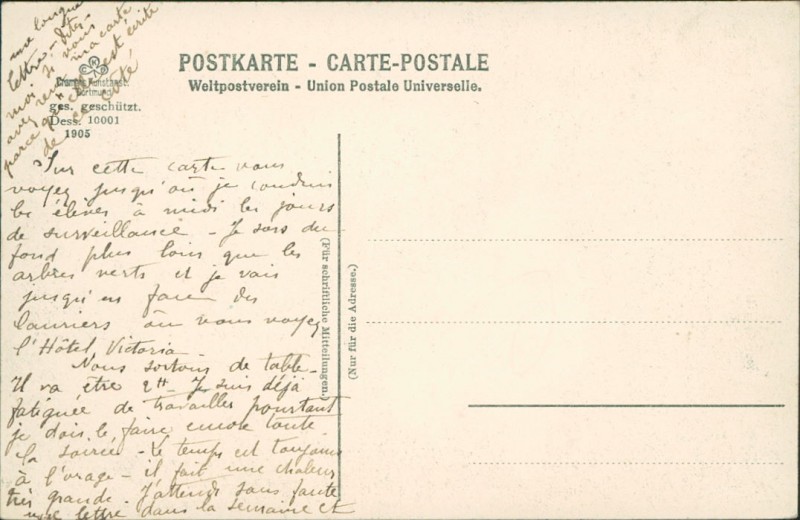 POSTKARTE - CARTE-POSTALE
Weltpostverein - Union Postale Universelle.
Dortmund
ges. geschützt.
Dess. 10001
1905
Sur cette carte vous
voyez jusqu'où je conduis
les élèves à midi les jours
de surveillance - Je sors du
fond plus loin que les
arbres verts et je vais
jusqu'en face des
lauriers où vous voyez
l'Hôtel Victoria -
Nous sortons de table -
Il va être 2h - Je suis déjà
fatiguée de travailler pourtant
je dois le faire encore toute
la soirée - le temps est toujours
à l'orage - il fait une chaleur
très grande - J'attends sans faute
une lettre dans la semaine et
une longue
lettre - dites
moi si vous
avez reçu ma carte
parce qu'elle est écrite
de ce côté
(Für schriftliche Mitteilungen.)
(Nur für die Adresse.)